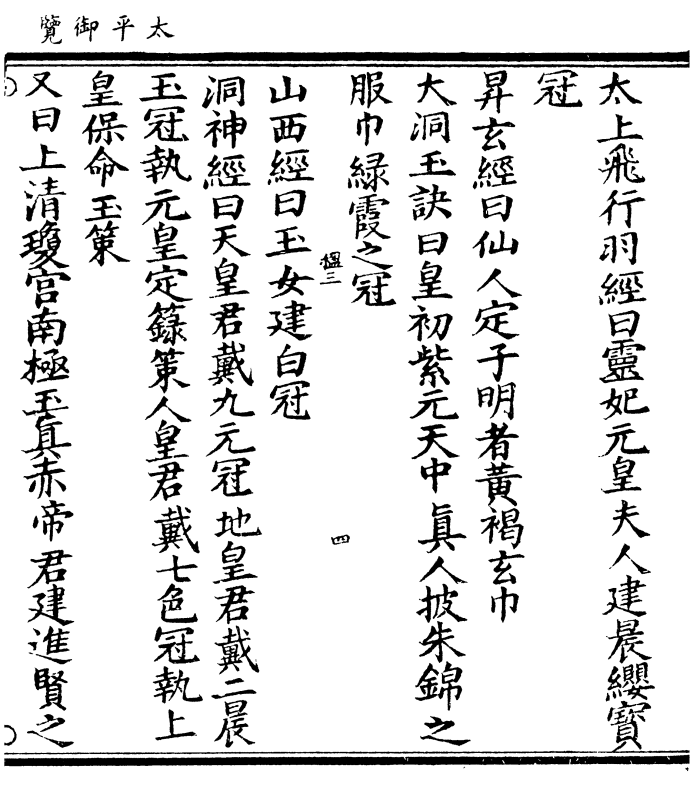 太平御覽
太上飛行羽經曰靈妃元皇夫人建晨纓寶
冠
昇玄經曰仙人定子明者黃褐玄巾
大洞玉訣曰皇初紫元天中真人披朱錦之
服巾緑霞之冠
四
山西經曰玉女建白冠
洞神經曰天皇君戴九元冠地皇君戴二晨
玉冠執元皇定籙策人皇君戴七色冠執上
皇保命玉策
又曰上清瓊宫南極玉真赤帝君建進賢之